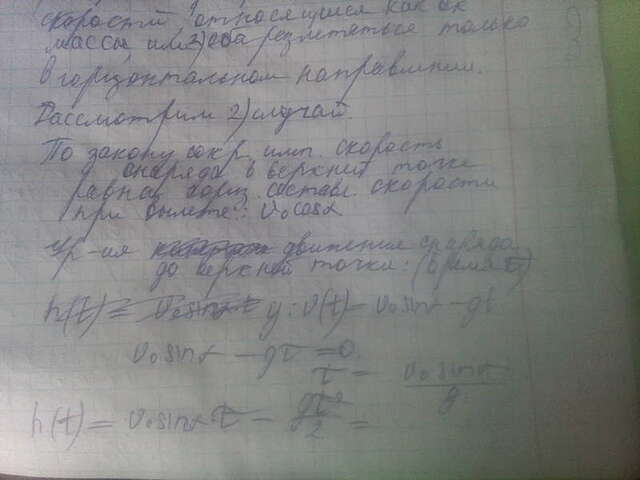 скоростй относящиеся как их
массы или 3) оба разлетяться только
в горизонтальном направлении.
Рассмотрим 2) случай.
По закону сохр. имп. скорость
снаряда в верхней точке
равна гориз. составл. скорости
при вылете: v₀cosα
Ур-ия движения снаряда
до верхней точки: (время τ)
h(t) = v₀sinα t y: v(t) = v₀sinα - gt
v₀sinα - gτ = 0
τ = v₀sinα / g
h(t) = v₀sinα·τ - gτ²/2 =